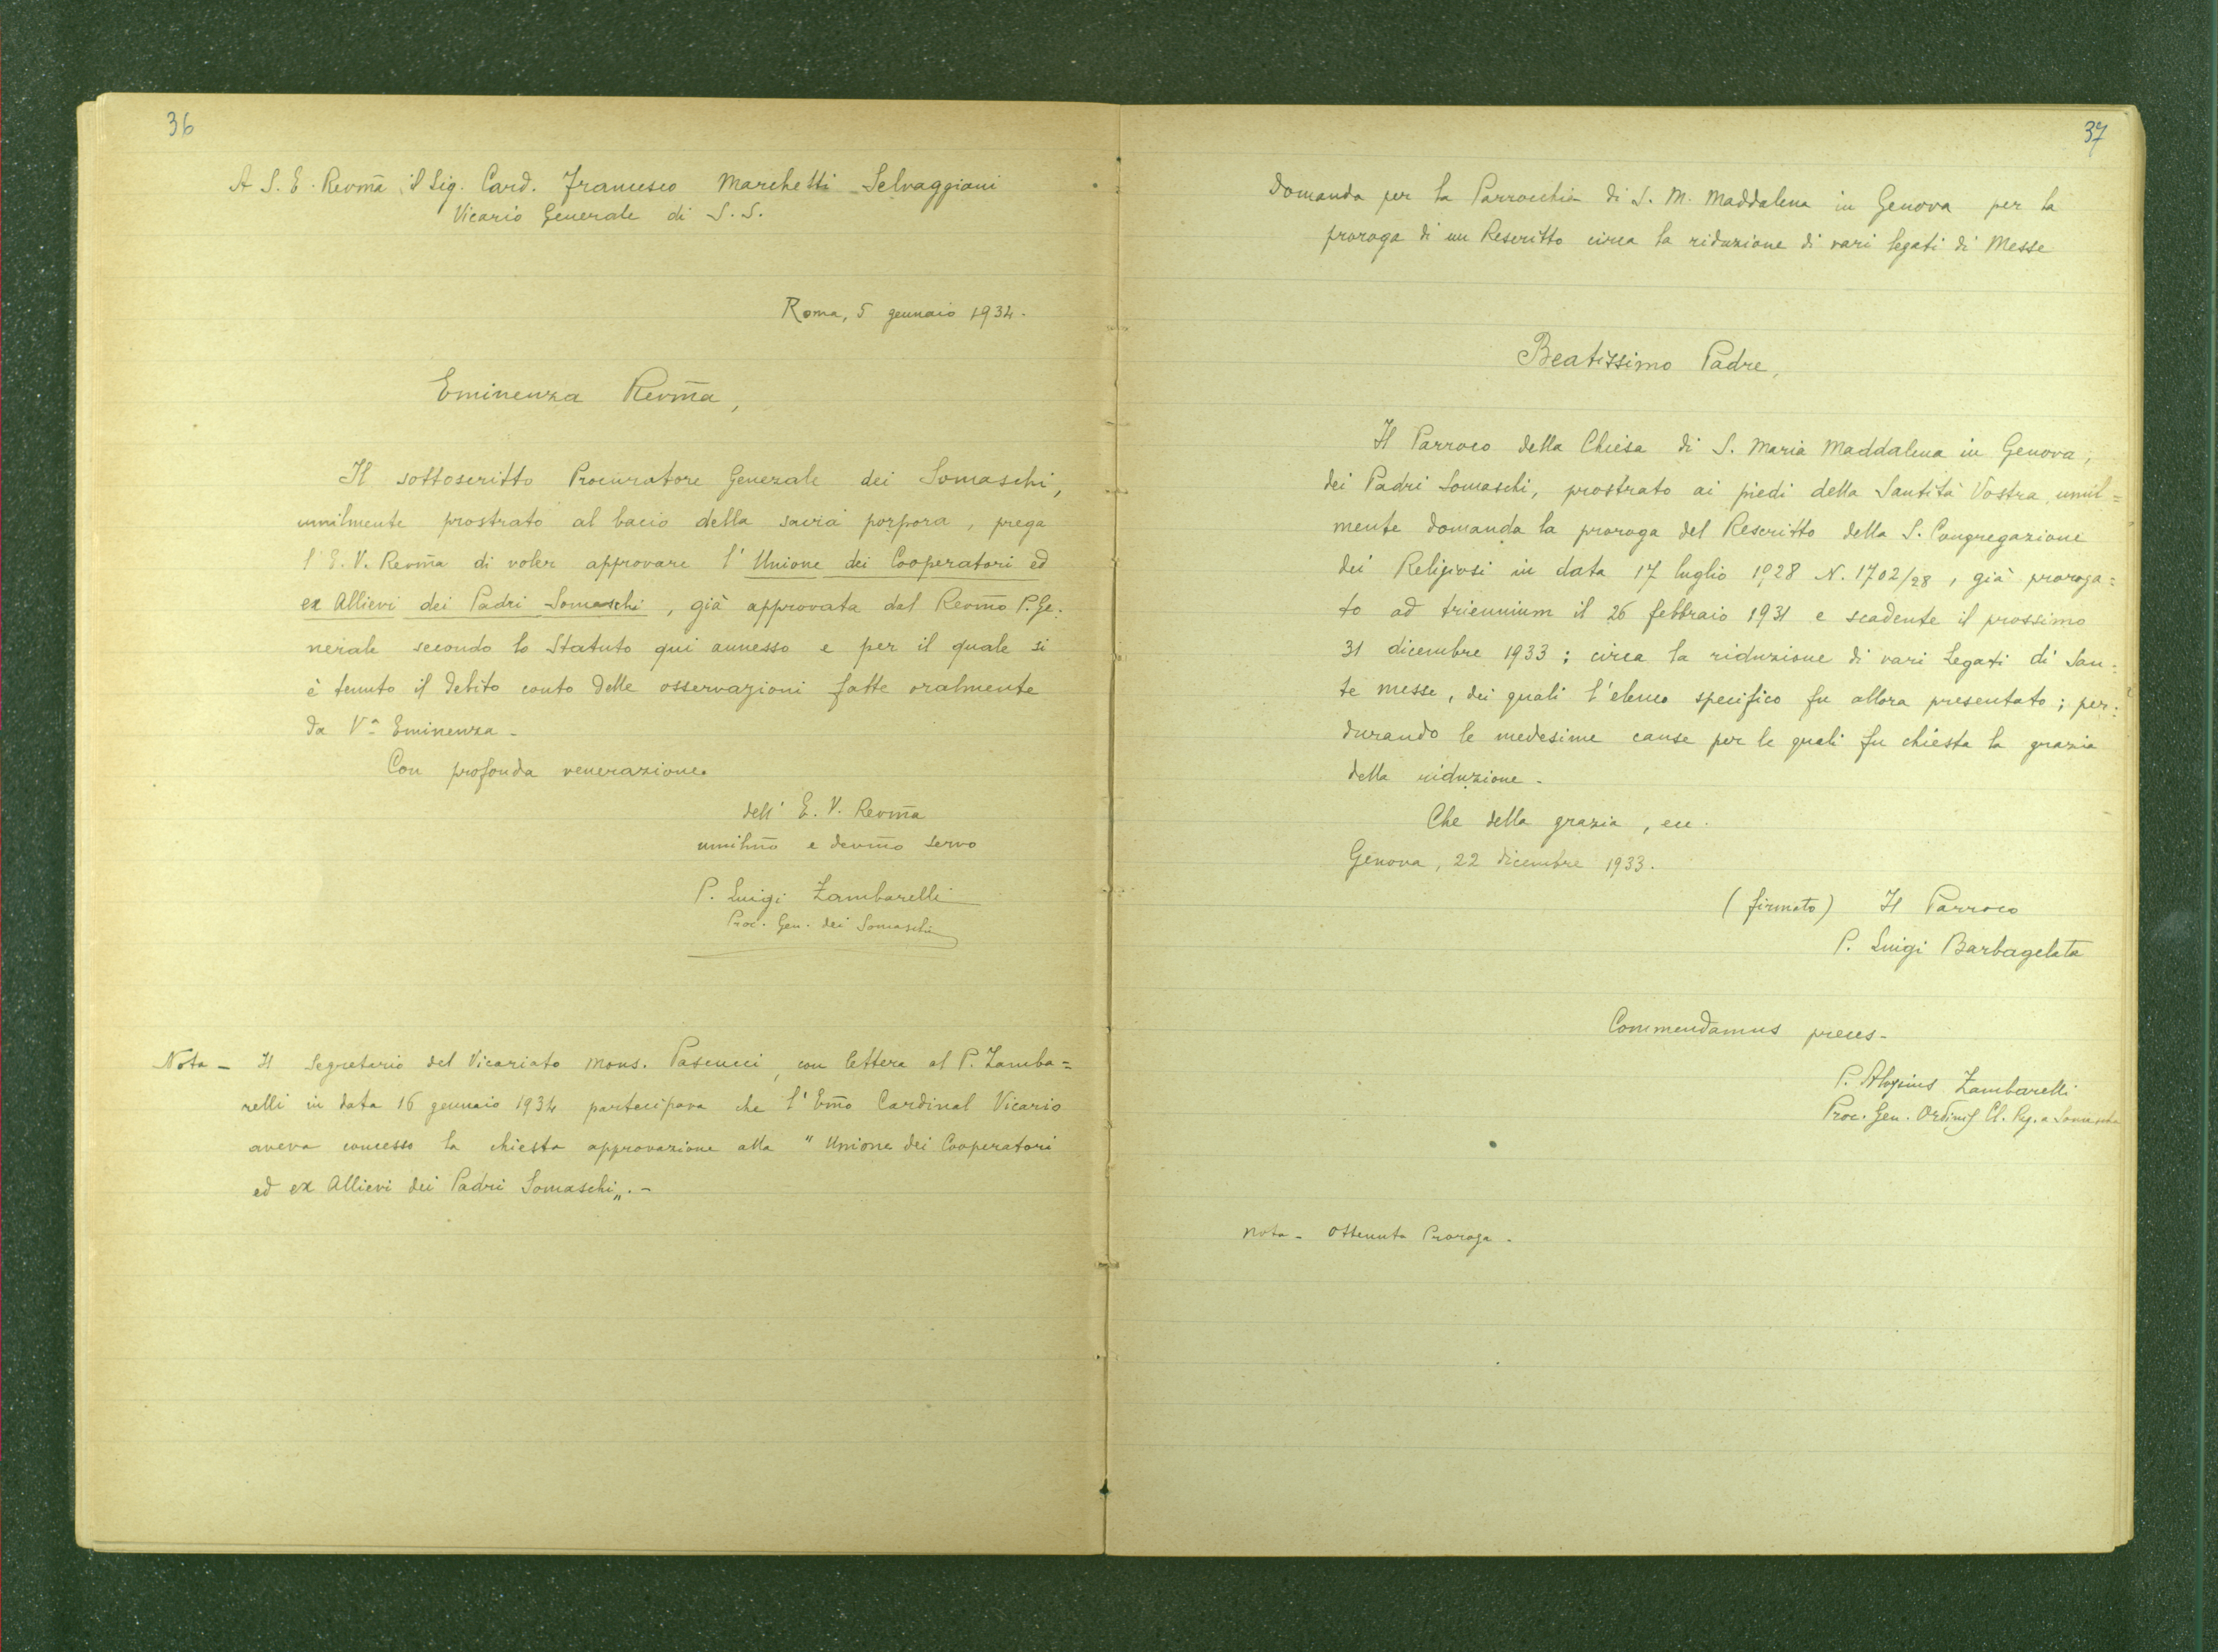 36
A S. E. Revm̄a il Sig. Card. Francesco Marchetti-Selvaggiani
Vicario Generale di S. S.
Roma, 5 gennaio 1934.
Eminenza Revm̄a,
Il sottoscritto Procuratore Generale dei Somaschi,
umilmente prostrato al bacio della sacra porpora, prega
l'E. V. Revm̄a di voler approvare l'Unione dei Cooperatori ed
ex Allievi dei Padri Somaschi, già approvata dal Revm̄o P. Ge=
nerale secondo lo Statuto qui annesso e per il quale si
è tenuto il debito conto delle osservazioni fatte oralmente
da Vª Eminenza -
Con profonda venerazione.
dell' E. V. Revm̄a
umilm̄o e devm̄o servo
P. Luigi Zambarelli
Proc. Gen. dei Somaschi
Nota - Il Segretario del Vicariato Mons. Pascucci, con lettera al P. Zamba=
relli in data 16 gennaio 1934 partecipava che l'Em̄o Cardinal Vicario
aveva concesso la chiesta approvazione alla "Unione dei Cooperatori
ed ex Allievi dei Padri Somaschi„. -
37
Domanda per la Parrocchia di S. M. Maddalena in Genova per la
proroga di un Rescritto circa la riduzione di vari legati di Messe
Beatissimo Padre,
Il Parroco della Chiesa di S. Maria Maddalena in Genova,
dei Padri Somaschi, prostrato ai piedi della Santità Vostra umil=
mente domanda la proroga del Rescritto della S. Congregazione
dei Religiosi in data 17 luglio 1928 N. 1702/28, già proroga=
to ad triennium il 26 febbraio 1931 e scadente il prossimo
31 dicembre 1933; circa la riduzione di vari Legati di San=
te messe, dei quali l'elenco specifico fu allora presentato; per=
durando le medesime cause per le quali fu chiesta la grazia
della riduzione.
Che della grazia, ecc.
Genova, 22 dicembre 1933.
(firmato) Il Parroco
P. Luigi Barbagelata
Commendamus preces -
P. Aloysius Zambarelli
Proc. Gen. Ordinis Cl. Reg. a Somascha
Nota - Ottenuta Proroga.